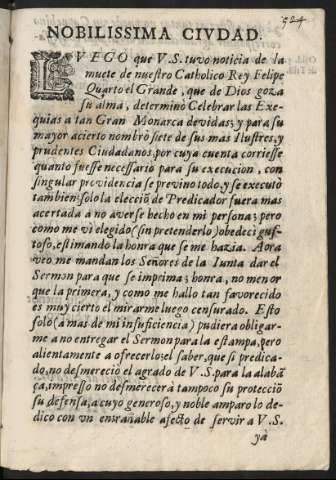 524
NOBILISSIMA CIVDAD.
LVEGO que V.S. tuvo noticia de la
muete de nuestro Catholico Rey Felipe
Quarto el Grande, que de Dios goza
su alma, determinò Celebrar las Exe-
quias a tan Gran Monarca devidas; y para su
mayor acierto nombrò siete de sus mas Ilustres, y
prudentes Ciudadanos, por cuya cuenta corriesse
quanto fuesse necessario para su execucion, con
singular providencia se previno todo, y se executò
tambien: solo la eleccio de Predicador fuera mas
acertada a no averse hecho en mi persona; pero
como me vi elegido (sin pretenderlo) obedeci gus-
toso, estimando la honra que se me hazia. Aora
veo me mandan los Señores de la Iunta dar el
Sermon para que se imprima; honra, no menor
que la primera, y como me hallo tan favorecido
es muy cierto el mirarme luego censurado. Esto
solo (a mas de mi insuficiencia) pudiera obligar-
me a no entregar el Sermon para la estampa, pero
alientamente a ofrecerlo: el saber, que si predica-
do, no desmereciò el agrado de V.S. para la alabã-
ça, impresso no desmerecerà tampoco su protecciõ
su defensa, a cuyo generoso, y noble amparo lo de-
dico con vn entrañable afecto de servir a V.S.
ya